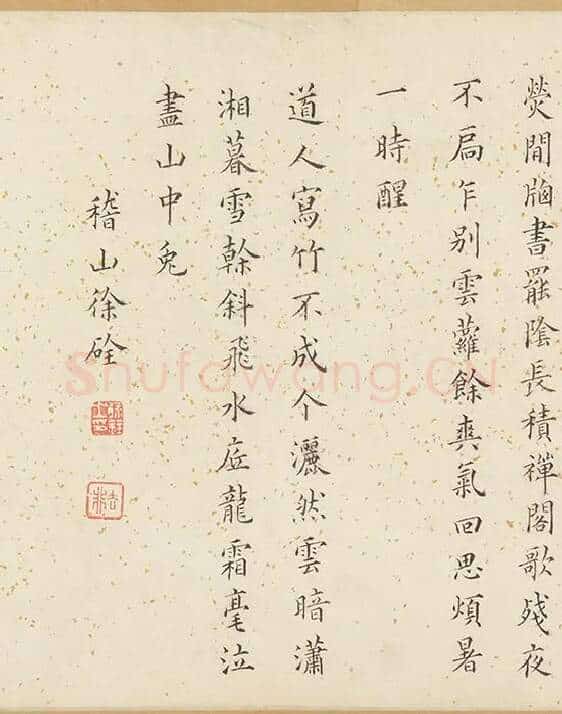 熒閒牕書罷陰長積禪閣歌殘夜
不扃乍別雲蘿餘爽氣回思煩暑
一時醒
道人寫竹不成个灑然雲暗瀟
湘暮雪幹斜飛水底龍霜毫泣
盡山中兔
嵇山徐銓
Shufawang.CN